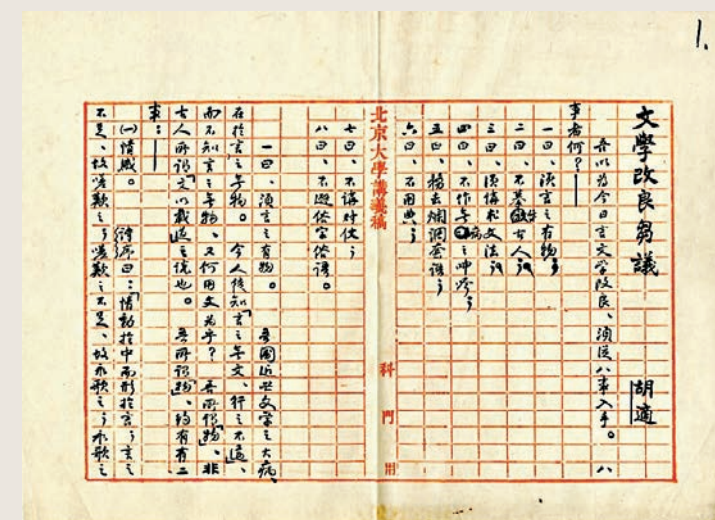 1.
文學改良芻議
胡適
吾以為今日言文學改良、須從八事入手。八
事者何？——
一曰、須言之有物；
二曰、不摹仿古人；
三曰、須講求文法；
四曰、不作無病呻吟；
五曰、務去爛調套語；
六曰、不用典；
北京大學講義稿
科門用
七曰、不講對仗；
八曰、不避俗字俗語。
一曰、須言之有物。吾國近世文學之大病、
在於言之無物。今人徒知「言之無文、行之不遠」、
而不知言之無物、又何用文為乎？吾所謂「物」、非
古人所謂「文以載道」之說也。吾所謂「物」、約有二
事：——
(一)情感。詩序曰：「情動於中而形於言；言之
不足、故嗟歎之；嗟歎之不足、故永歌之；永歌之